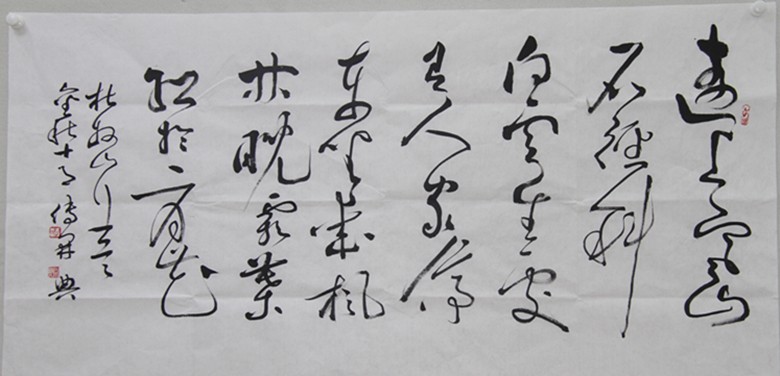 遠上寒山
石徑斜
白雲生處
有人家停
車坐愛楓
林晚霜葉
紅於二月花
杜牧山行
金秋十月傳典